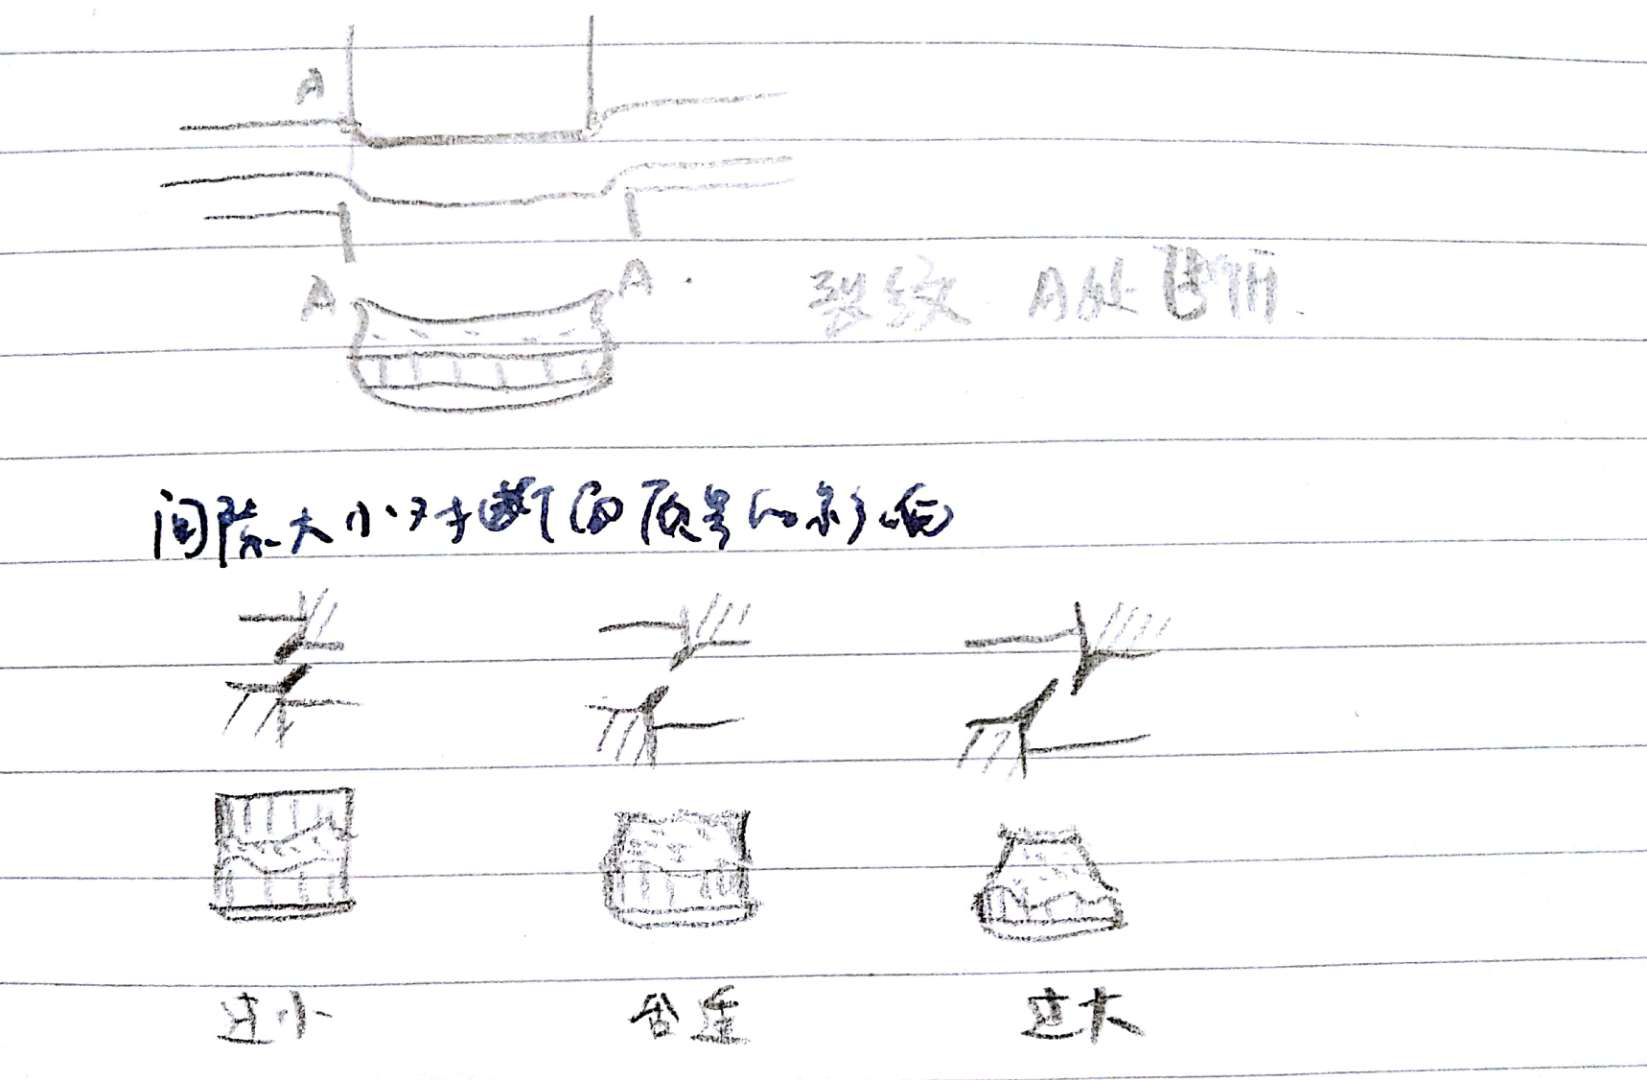 A
A A
裂纹 A处
间隙大小对断面质量的影响
过小 合适 过大